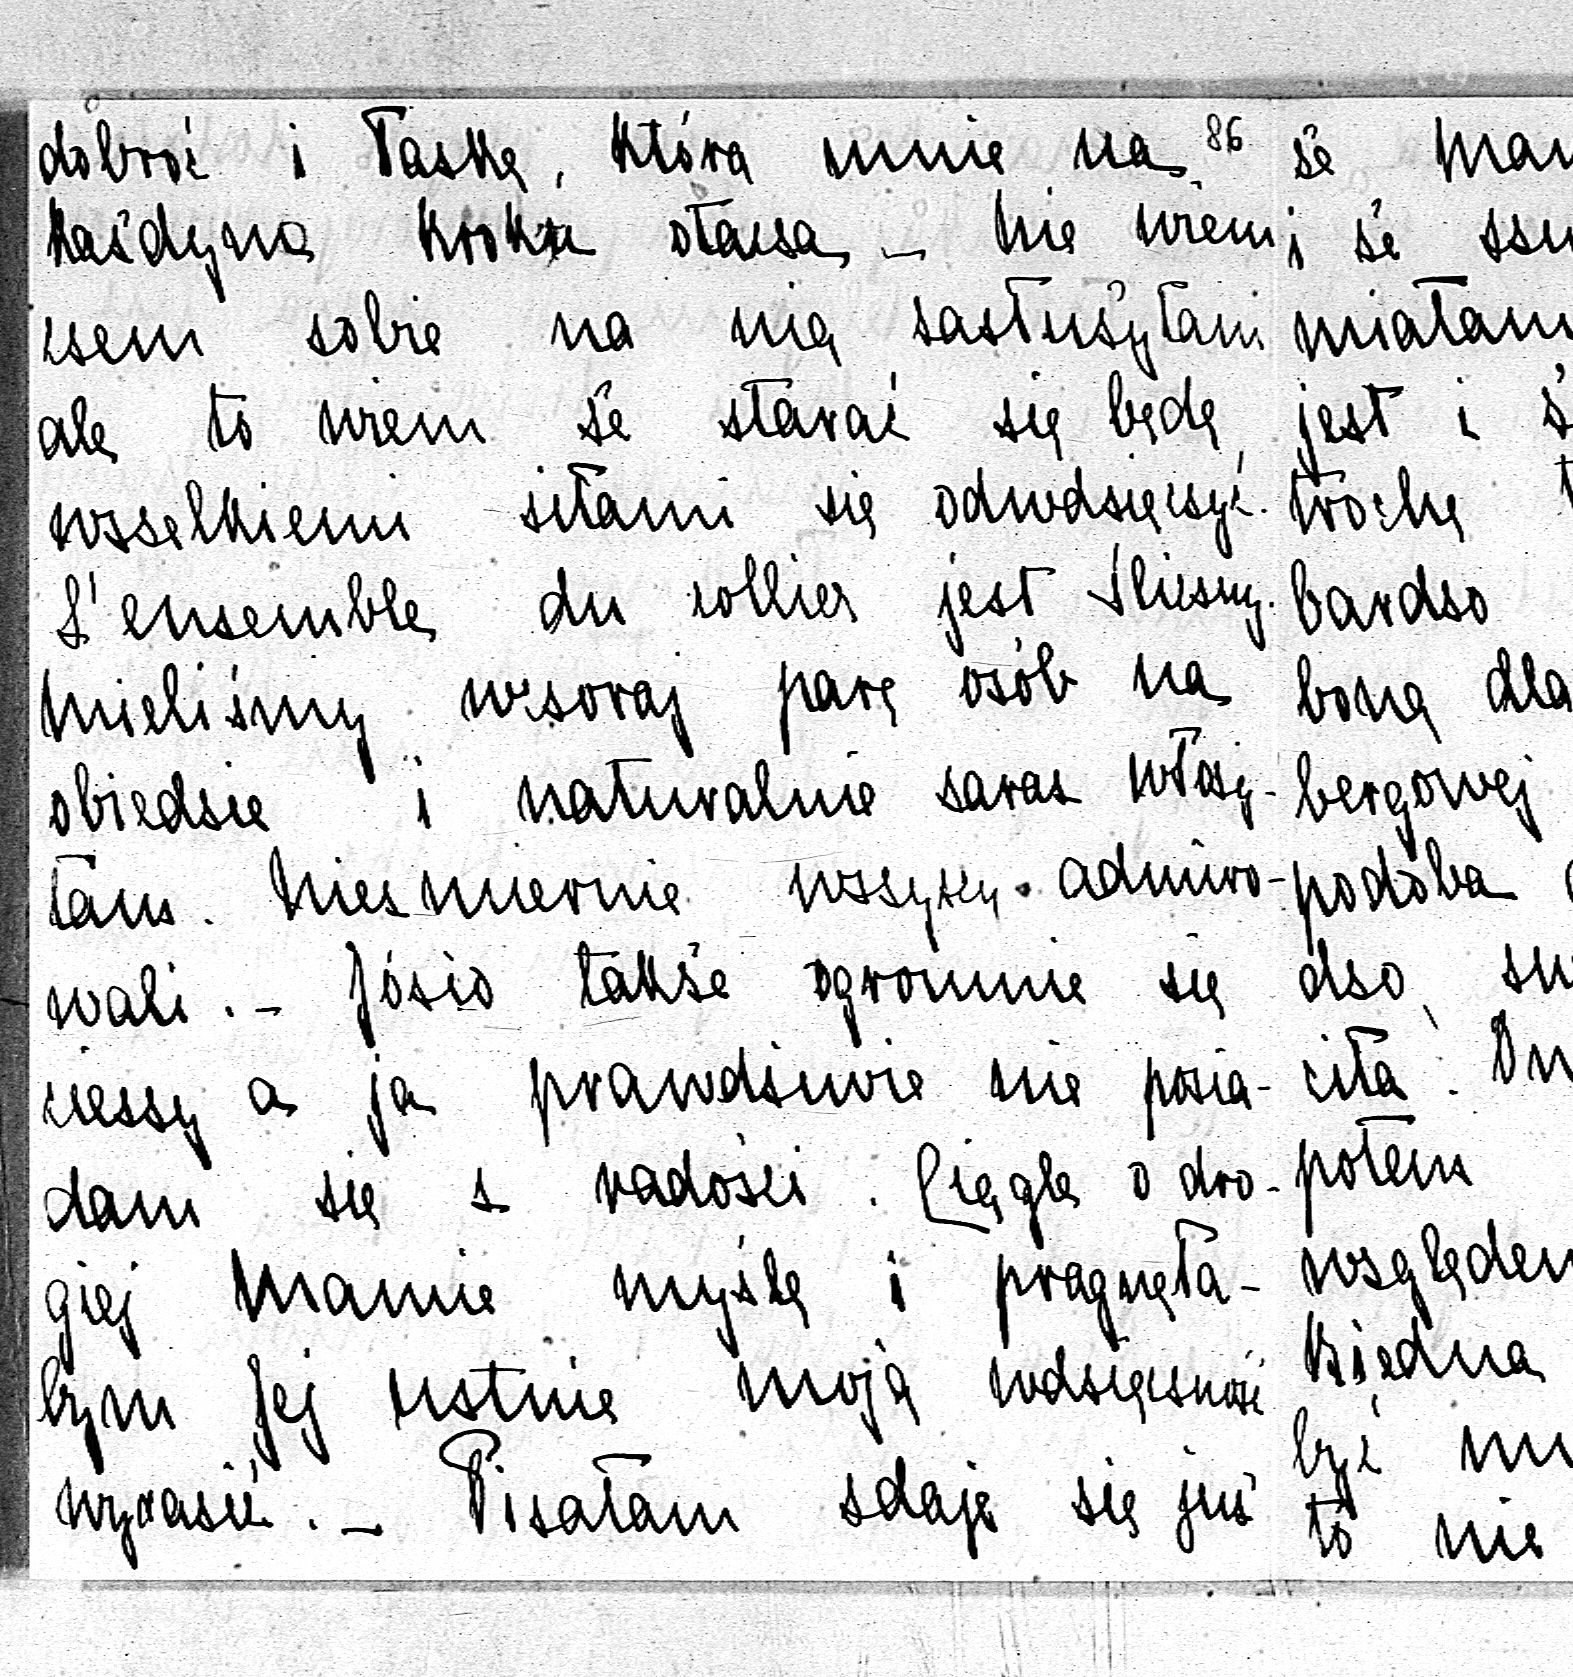 dobroć i łaskę, którą mnie na 86
każdym kroku otacza, – Nie wiem
czem sobie na nią zasłużyłam
ale to wiem że starać się będę
wszelkiemi siłami się odwdzięczyć.
L'ensemble du collier jest śliczny.
Mieliśmy wczoraj parę osób na
obiedzie i naturalnie zaraz włoży-
łam. Niezmiernie wszyscy admiro-
wali. – Józio także ogromnie się
cieszy a ja prawdziwie nie posia-
dam się z radości. Ciągle o dro-
giej Mamie myślę i pragnęła-
bym Jej ustnie moją wdzięczność
wyrazić. – Pisałam zdaje się już
że
i że
miałam
jest i
trochę
bardzo
boną dla
bergowej
podoba
dzo
ciła.
potem
względem
biedna
być
to nie